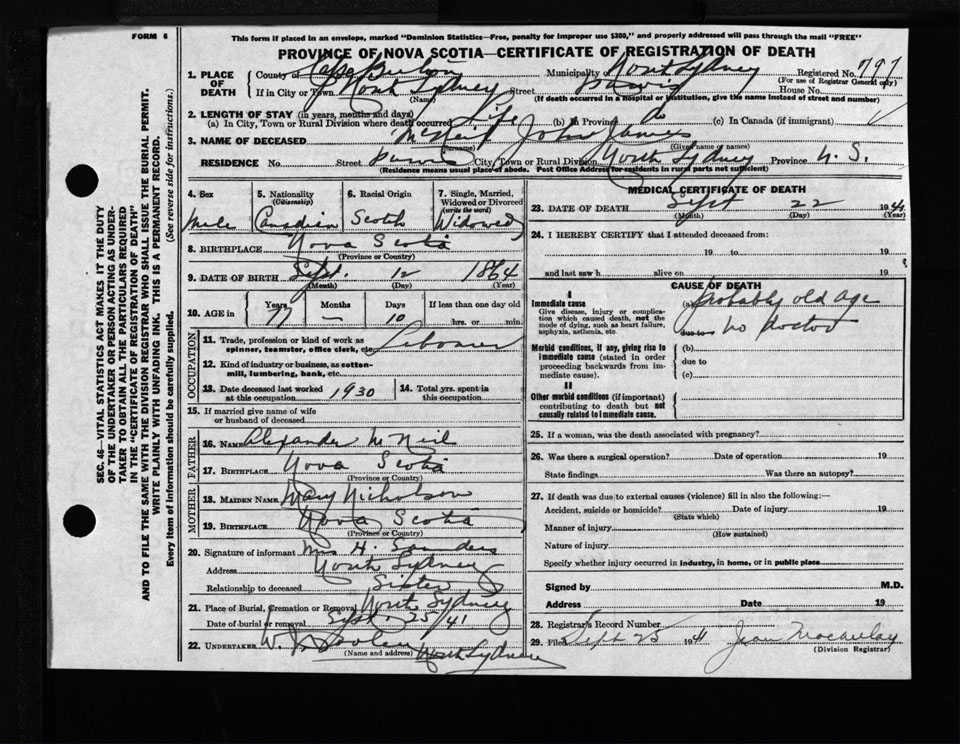 FORM 6
This form if placed in an envelope, marked "Dominion Statistics—Free, penalty for improper use $300," and properly addressed will pass through the mail "FREE"
PROVINCE OF NOVA SCOTIA—CERTIFICATE OF REGISTRATION OF DEATH
1. PLACE OF DEATH
County of Cape Breton Municipality of North Sydney Registered No. 797
(For use of Registrar General only)
If in City or Town North Sydney Street House No.
(Name) (If death occurred in a hospital or institution, give the name instead of street and number)
2. LENGTH OF STAY (in years, months and days)
(a) In City, Town or Rural Division where death occurred Life (b) in Province (c) In Canada (if immigrant)
3. NAME OF DECEASED McNeil John James
(Surname) (Given name or names)
RESIDENCE No. Street City, Town or Rural Division North Sydney Province N. S.
(Residence means usual place of abode. Post Office Address for residents in rural parts not sufficient)
SEC. 46—VITAL STATISTICS ACT MAKES IT THE DUTY
OF THE UNDERTAKER OR PERSON ACTING AS UNDER-
TAKER TO OBTAIN ALL THE PARTICULARS REQUIRED
IN THE "CERTIFICATE OF REGISTRATION OF DEATH"
AND TO FILE THE SAME WITH THE DIVISION REGISTRAR WHO SHALL ISSUE THE BURIAL PERMIT.
WRITE PLAINLY WITH UNFADING INK. THIS IS A PERMANENT RECORD.
Every item of Information should be carefully supplied. (See reverse side for instructions.)
4. Sex Male
5. Nationality (Citizenship) Canadian
6. Racial Origin Scotch
7. Single, Married, Widowed or Divorced (write the word) Widowed
8. BIRTHPLACE Nova Scotia
(Province or Country)
9. DATE OF BIRTH Sept. 12 1864
(Month) (Day) (Year)
10. AGE in Years 77 Months — Days 10 If less than one day old hrs. or min.
OCCUPATION
11. Trade, profession or kind of work as spinner, teamster, office clerk, etc. Laborer
12. Kind of industry or business, as cotton-mill, lumbering, bank, etc.
13. Date deceased last worked at this occupation 1930
14. Total yrs. spent in this occupation
15. If married give name of wife or husband of deceased
FATHER
16. NAME Alexander McNeil
17. BIRTHPLACE Nova Scotia
(Province or Country)
MOTHER
18. MAIDEN NAME Mary Nicholson
19. BIRTHPLACE Nova Scotia
(Province or Country)
20. Signature of informant Mrs H. Saunders
Address North Sydney
Relationship to deceased Sister
21. Place of Burial, Cremation or Removal North Sydney
Date of burial or removal Sept. 25/41
22. UNDERTAKER North Sydney
(Name and address)
MEDICAL CERTIFICATE OF DEATH
23. DATE OF DEATH Sept 22 1941
(Month) (Day) (Year)
24. I HEREBY CERTIFY that I attended deceased from:
19 to 19
and last saw h alive on 19
CAUSE OF DEATH
I
Immediate cause (a) Probably old age
Give disease, injury or complication which caused death, not the mode of dying, such as heart failure, asphyxia, asthenia, etc.
due to no doctor
Morbid conditions, if any, giving rise to immediate cause (stated in order proceeding backwards from immediate cause).
(b)
due to
(c)
II
Other morbid conditions (if important) contributing to death but not causally related to immediate cause.
25. If a woman, was the death associated with pregnancy?
26. Was there a surgical operation? Date of operation 19
State findings Was there an autopsy?
27. If death was due to external causes (violence) fill in also the following:—
Accident, suicide or homicide? Date of injury 19
(State which)
Manner of injury
(How sustained)
Nature of injury
Specify whether injury occurred in industry, in home, or in public place
Signed by M.D.
Address Date 19
28. Registrar's Record Number
29. Filed Sept 25 1941 Jean Macaulay
(Division Registrar)